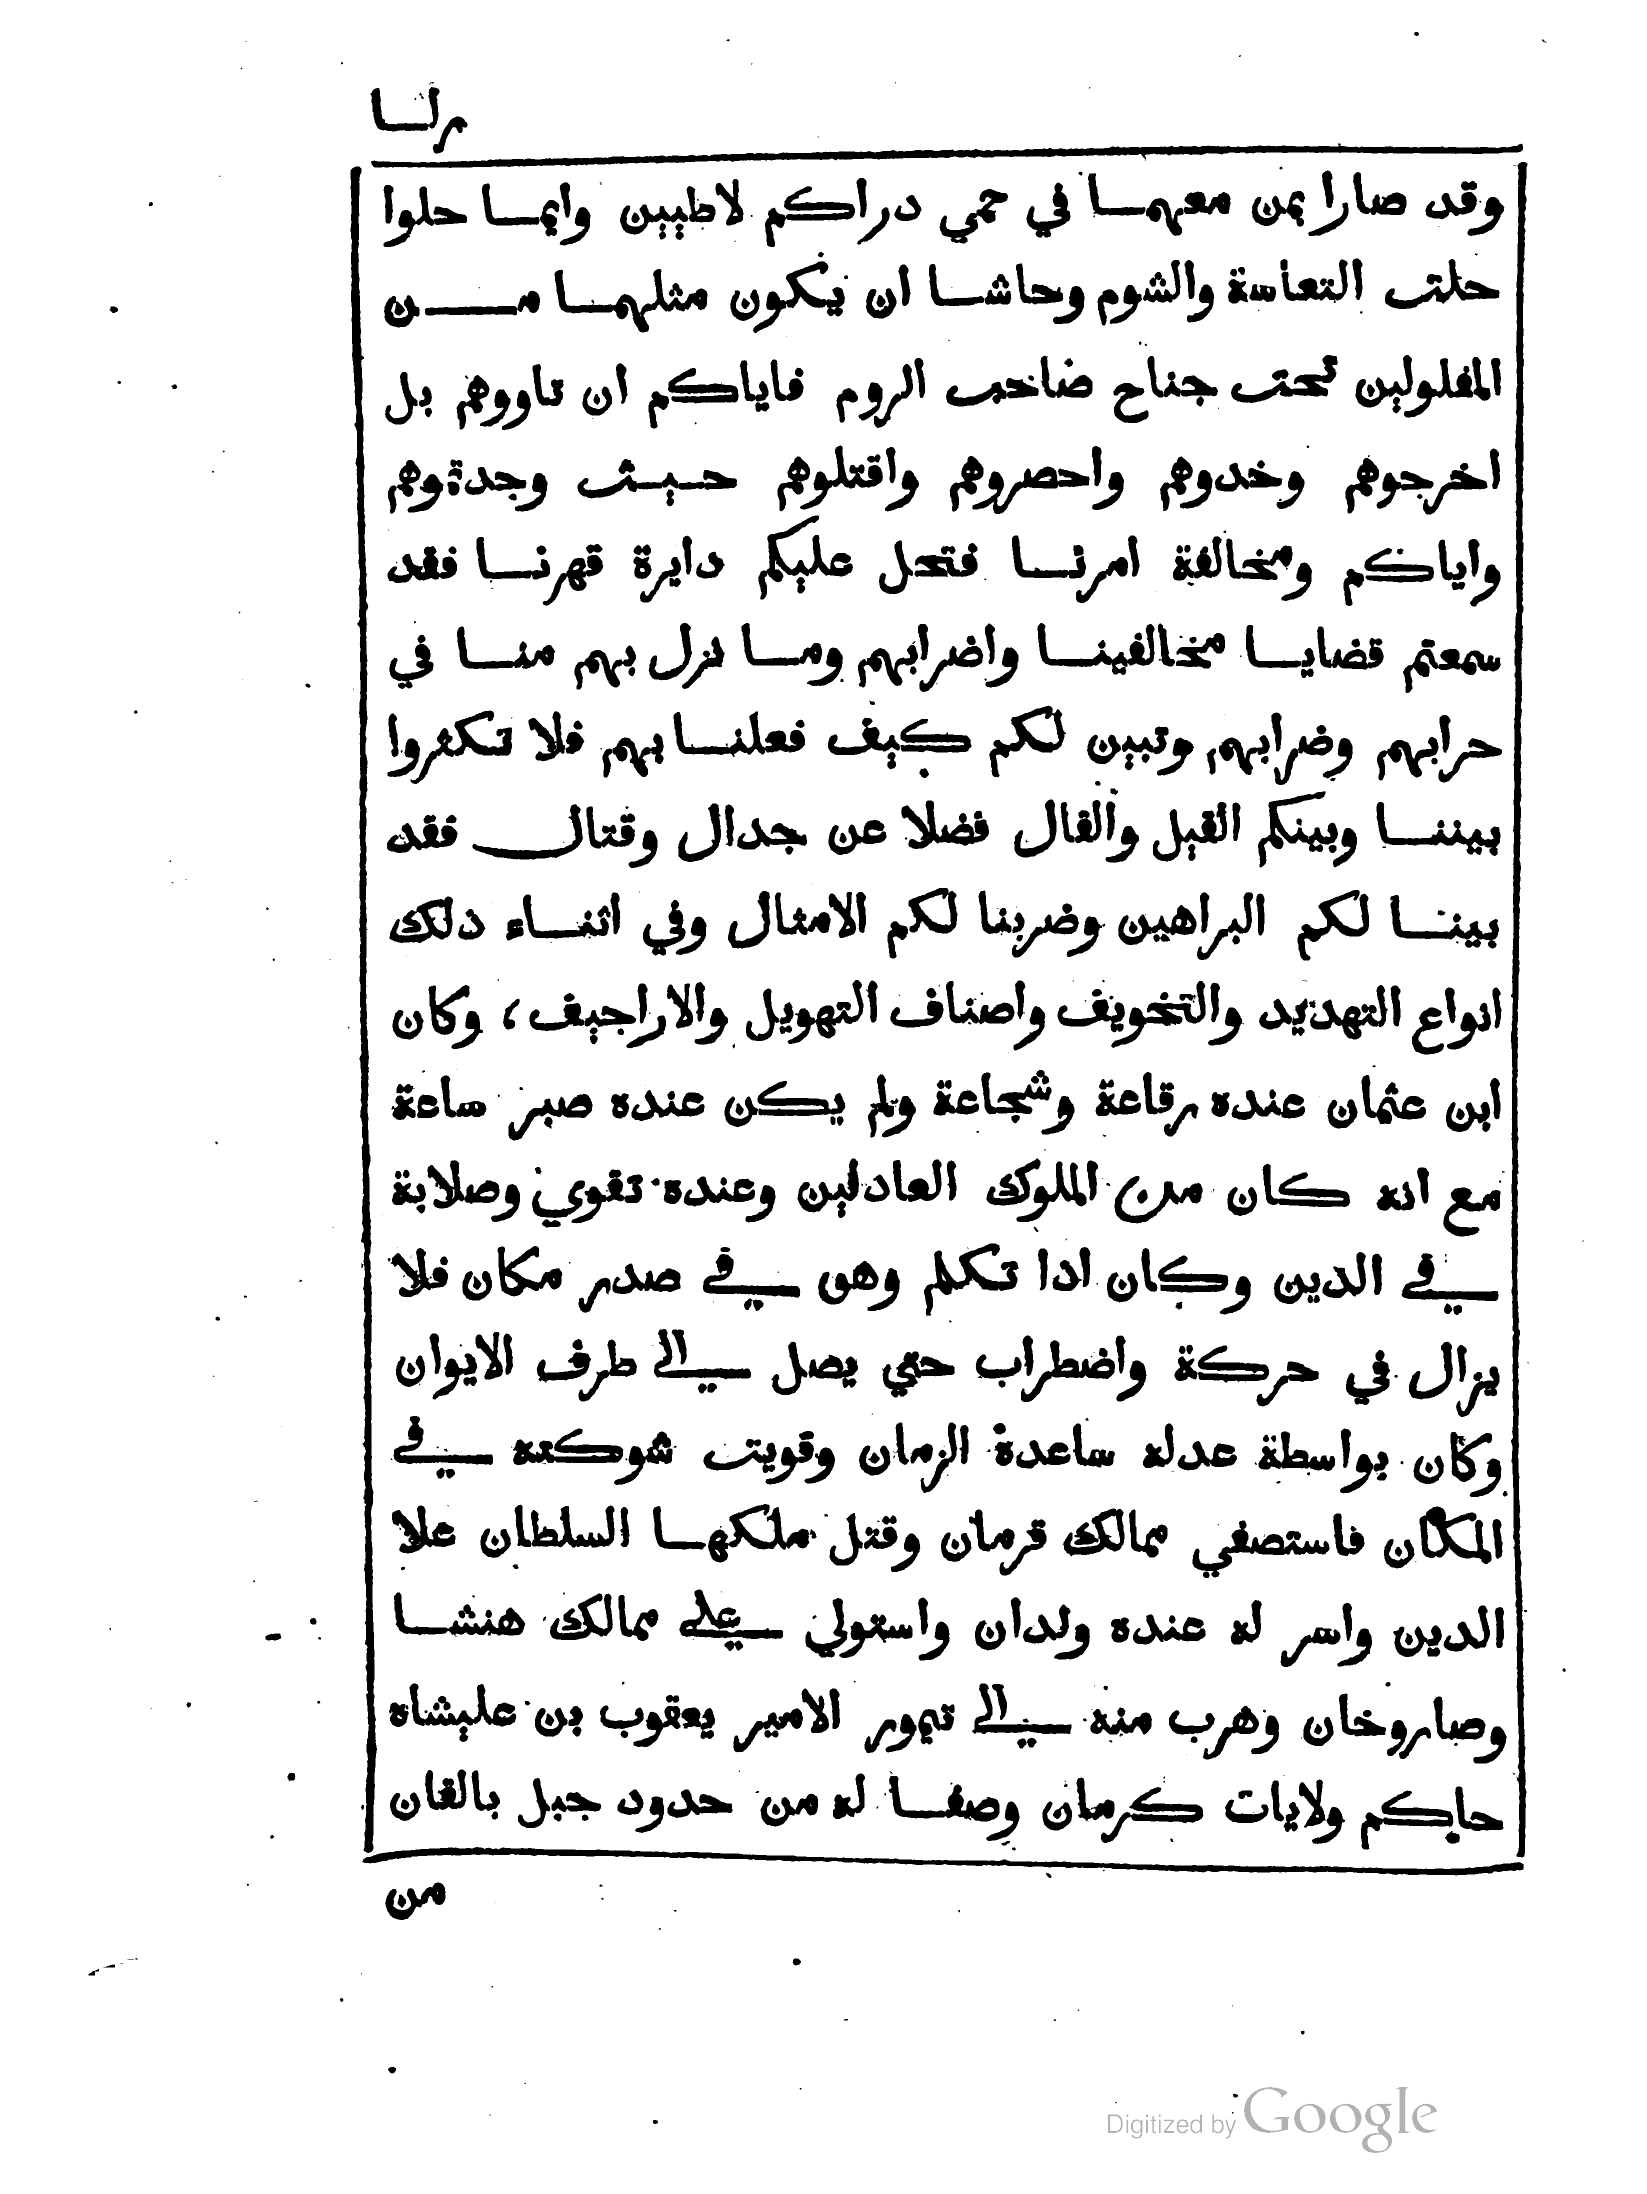 وقد صارا بمن معهما في حمي دراكم لاطيين وايما حلوا
حلت التعاسة والشوم وحاشا ان يكون مثلهما من
المفلولين تحت جناح صاحب الروم فاياكم ان تاووهم بل
اخرجوهم وخدوهم واحصروهم واقتلوهم حيث وجدتموهم
واياكم ومخالفة امرنا فتحل عليكم دايرة قهرنا فقد
سمعتم قضايا مخالفينا واضرابهم وما نزل بهم منا في
حرابهم وضرابهم وتبين لكم كيف فعلنا بهم فلا تكثروا
بيننا وبينكم القيل والقال فضلا عن جدال وقتال فقد
بينا لكم البراهين وضربنا لكم الامثال وفي اثناء دلك
انواع التهديد والتخويف واصناف التهويل والاراجيف، وكان
ابن عثمان عنده رقاعة وشجاعة ولم يكن عنده صبر ساعة
مع انه كان من الملوك العادلين وعنده تقوي وصلابة
في الدين وكان ادا تكلم وهو في صدر مكان فلا
يزال في حركة واضطراب حتي يصل الي طرف الايوان
وكان بواسطة عدله ساعدة الزمان وقويت شوكته في
المكان فاستصفي ممالك قرمان وقتل ملكها السلطان علا
الدين واسر له عنده ولدان واستولي علي ممالك هنشا
وصاروخان وهرب منه الي تيمور الامير يعقوب بن عليشاه
حاكم ولايات كرمان وصفا له من حدود جبل بالقان
من
Digitized by Google